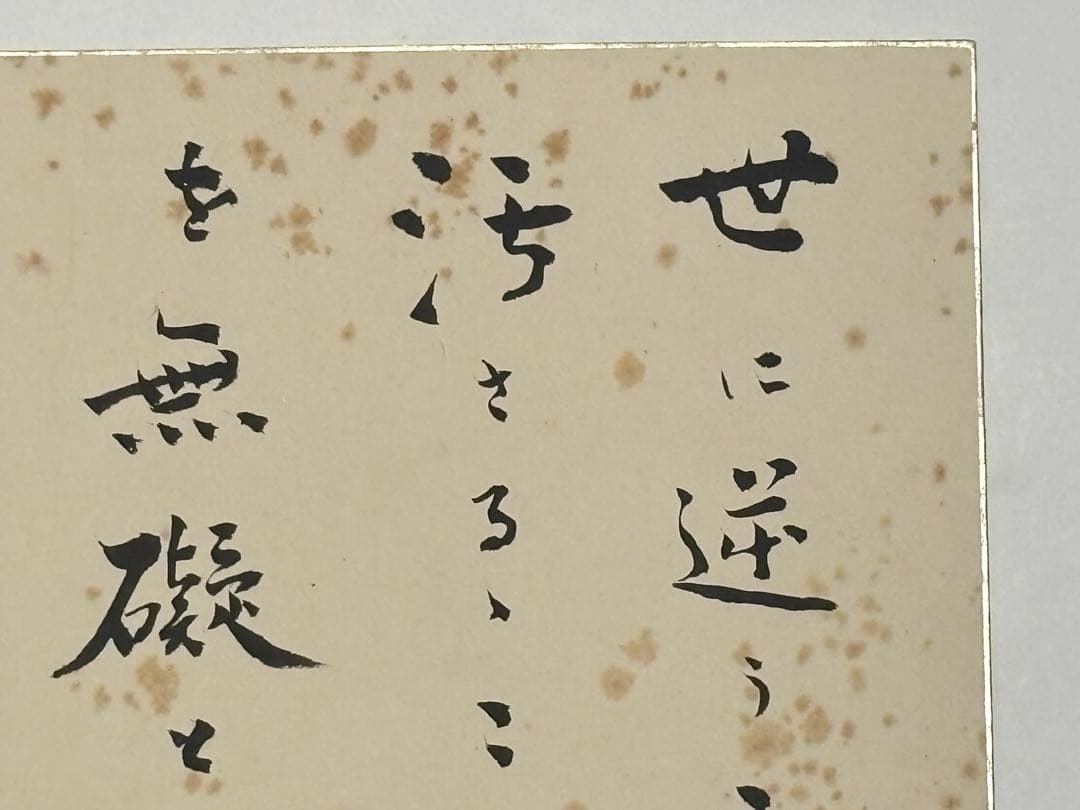 世に逆う
汚さるゝこ
を無礙と